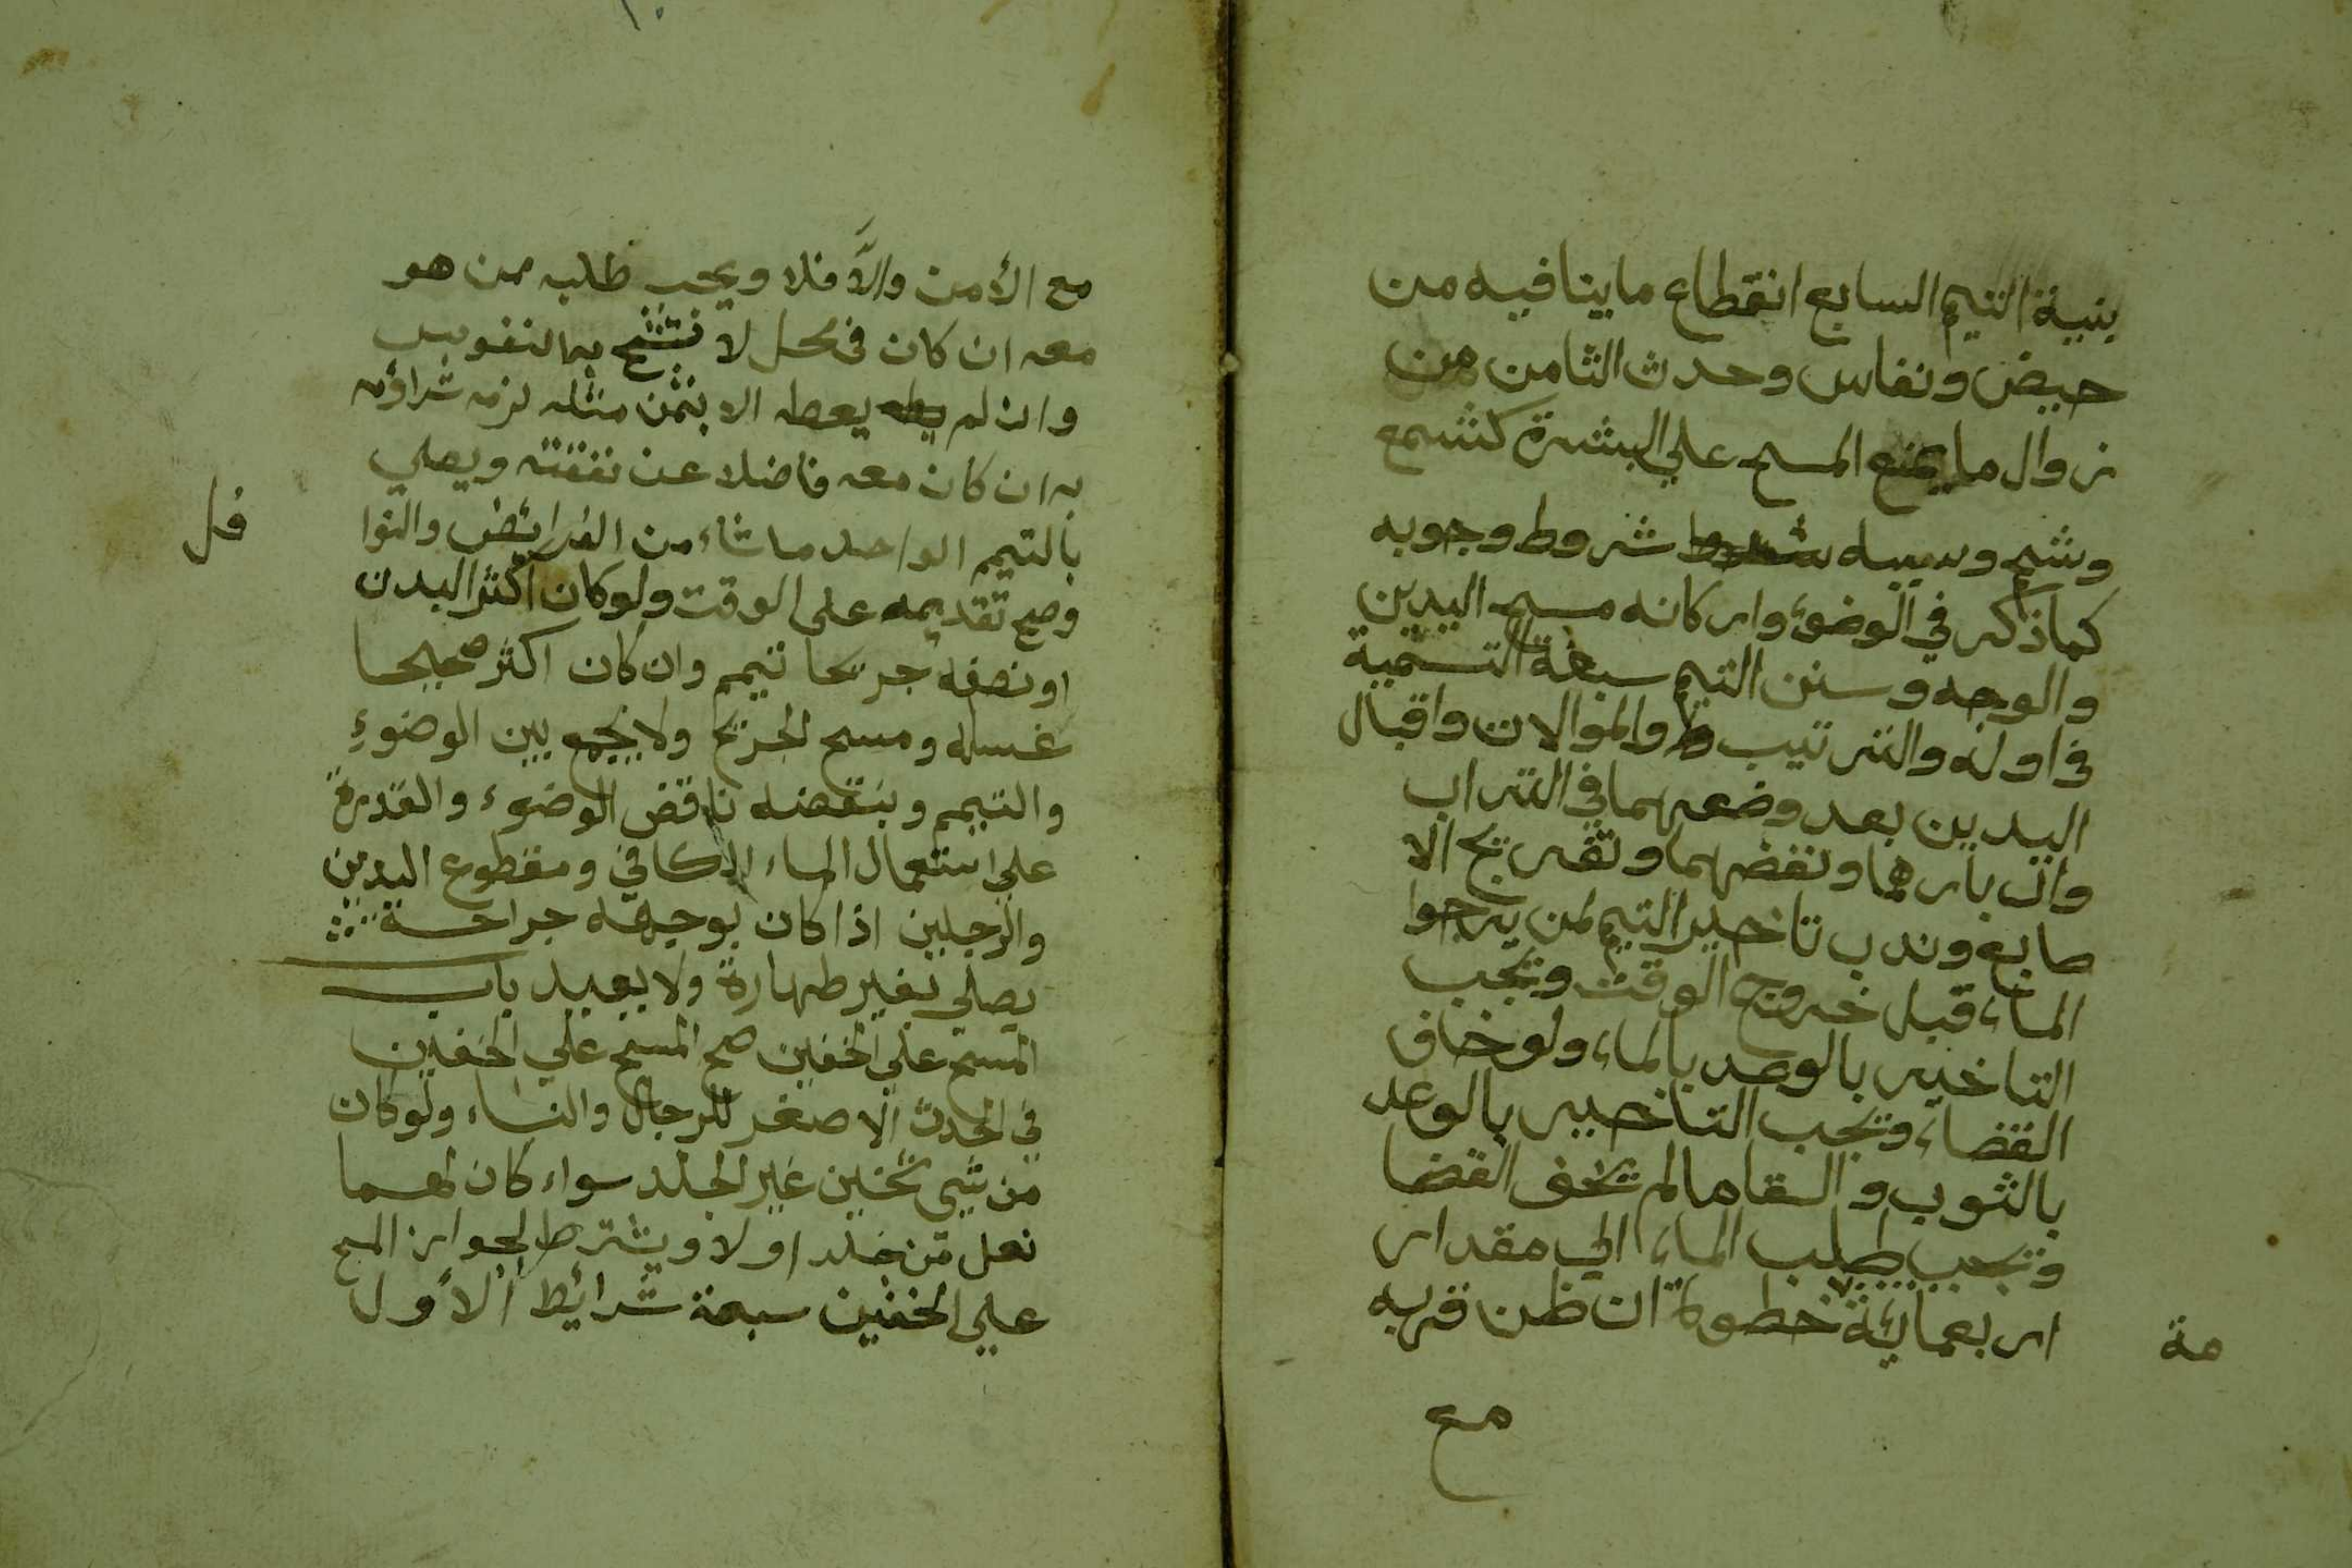 بنية التيم السابع انقطاع ما ينافيه من
حيض ونفاس وحدث الثامن من
زوال ما يمنع المسح علي البشرة كشمع
وشحم وسببه شروط وجوبه
كما ذكر في الوضوء واركانه مسح اليدين
والوجه وسنن التيمم سبعة التسمية
في اوله والترتيب والموالات واقبال
اليدين بعد وضعهما في التراب
وادبارهما ونفضهما وتفريج الا
صابع وندب تاخير التيمم لمن يرجوا
الماء قبل خروج الوقت ويجب
التاخير بالوعد بالماء ولو خاف
القضاء ويجب التاخير بالوعد
بالثوب والسقا ما لم يخف القضا
ويجب طلب الماء الي مقدار
اربعمائة خطوة ان ظن قربه
مة
مع
مع الأمن والاَّ فلا ويجب طلبه ممن هو
معه ان كان في محل لا تشح به النفوس
وان لم يعطه الا بثمن مثله لزمه شراؤه
به ان كان معه فاضلا عن نفقته ويصلي
بالتيمم الواحد ما شاء من الفرائض والنوا
فل
وصح تقديمه على الوقت ولو كان اكثر البدن
او نصفه جريحا تيمم وان كان اكثر صحيحا
غسله ومسح الجريح ولا يجمع بين الوضوءِ
والتيمم وينقضه ناقض الوضوء والقدرة
علي استعمال الماء الكافي ومقطوع اليدين
والرجلين اذا كان بوجهه جراحة
يصلي بغير طهارة ولا يعيد باب
المسح علي الخفين صح المسح علي الخفين
في الحدث الاصغر للرجال والنساء ولو كان
من شي ثخين غير الجلد سواء كان لهما
نعل من جلد او لا ويشترط لجواز المسح
علي الخفين سبعة شرائط الأول